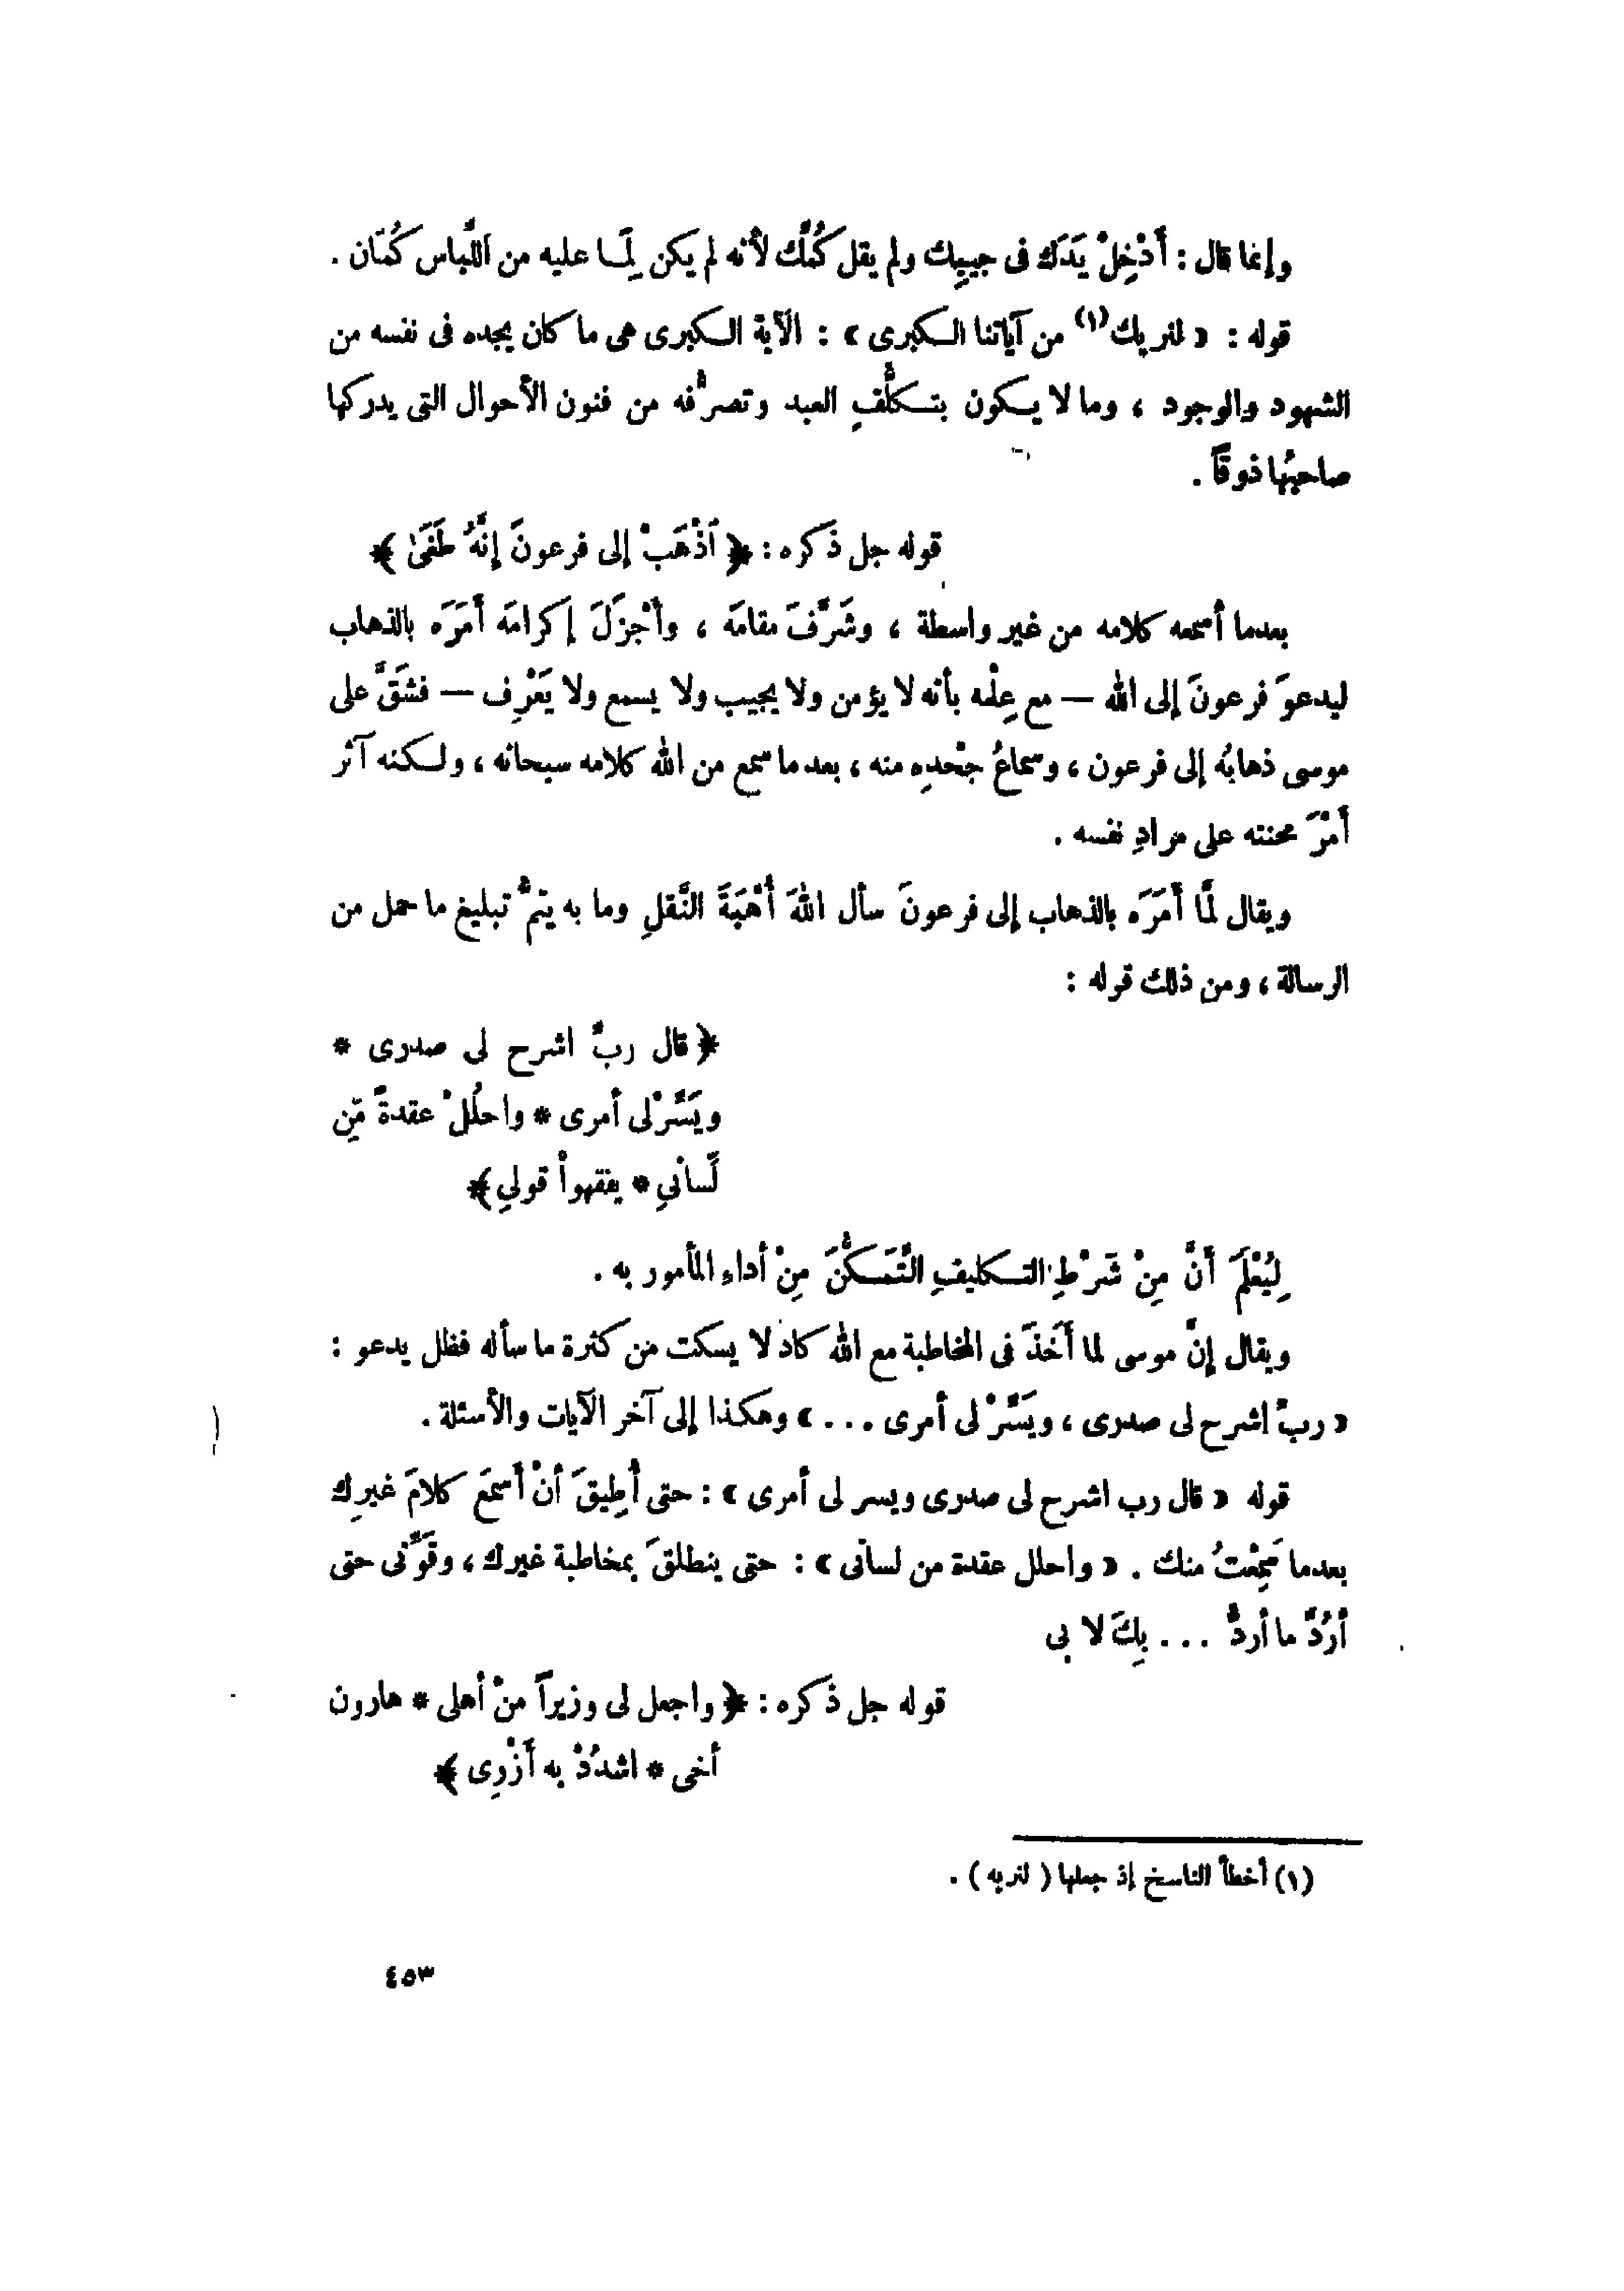 وإنما قال : أَدْخِلْ يَدَكَ فى جيبِك ولم يقل كُمِّك لأنه لم يكن لِمَا عليه من اللِّباس كُمَّان .
قوله : « لنريك(١) من آياتنا الكبرى » : الآية الكبرى هى ما كان يجده فى نفسه من
الشهود والوجود ، وما لا يكون بتكلُّفِ العبد وتصرُّفه من فنون الأحوال التى يدركها
صاحبُها ذوقاً .
قوله جل ذكره : ﴿ ٱذْهَبْ إلى فرعونَ إنَّهُ طَغَىٰ ﴾
بعدما أسمعه كلامه من غير واسطة ، وشَرَّفَ مقامَه ، وأَجْزَلَ إكرامَه أَمَرَه بالذهاب
ليدعوَ فرعونَ إلى الله — مع عِلْمه بأنه لا يؤمن ولا يجيب ولا يسمع ولا يَعْرِف — فشَقَّ على
موسى ذهابُه إلى فرعون ، وسماعُ جحْدِه منه ، بعد ما سمع من الله كلامه سبحانه ، ولكنه آثر
أَمْرَ محنته على مرادِ نفسه .
ويقال لمَّا أَمَرَه بالذهاب إلى فرعونَ سأل اللهَ أُهْبَةَ النَّقلِ وما به يتمُّ تبليغ ما حمل من
الرسالة ، ومن ذلك قوله :
﴿ قال ربِّ اشرح لى صدرى *
ويَسِّرْ لى أمرى * واحلُلْ عقدةً مِّن
لِّسانىِ * يفقهواْ قولىِ ﴾
لِيُعْلَمَ أَنَّ مِنْ شَرْطِ التكليفِ التَّمَكُّنَ مِنْ أداءِ المأمور به .
ويقال إنَّ موسى لما أَخَذَ فى المخاطبة مع الله كاد لا يسكت من كثرة ما سأله فظل يدعو :
« ربِّ اشرح لى صدرى ، ويَسِّرْ لى أمرى ... » وهكذا إلى آخر الآيات والأسئلة .
قوله « قال رب اشرح لى صدرى ويسر لى أمرى » : حتى أُطِيقَ أنْ أسمعَ كلامَ غيرِك
بعدما سَمِعْتُ منك . « واحلل عقدة من لسانى » : حتى ينطلقَ بمخاطبة غيرك ، وقَوِّنى حتى
أرُدَّ ما أردُّ ... بِكَ لا بى
قوله جل ذكره : ﴿ واجعل لى وزيراً منْ أهلى * هارون
أخى * اشدُدْ به أَزْرِى ﴾
(١) أخطأ الناسخ إذ جعلها ( لنريه ) .
٤٥٣